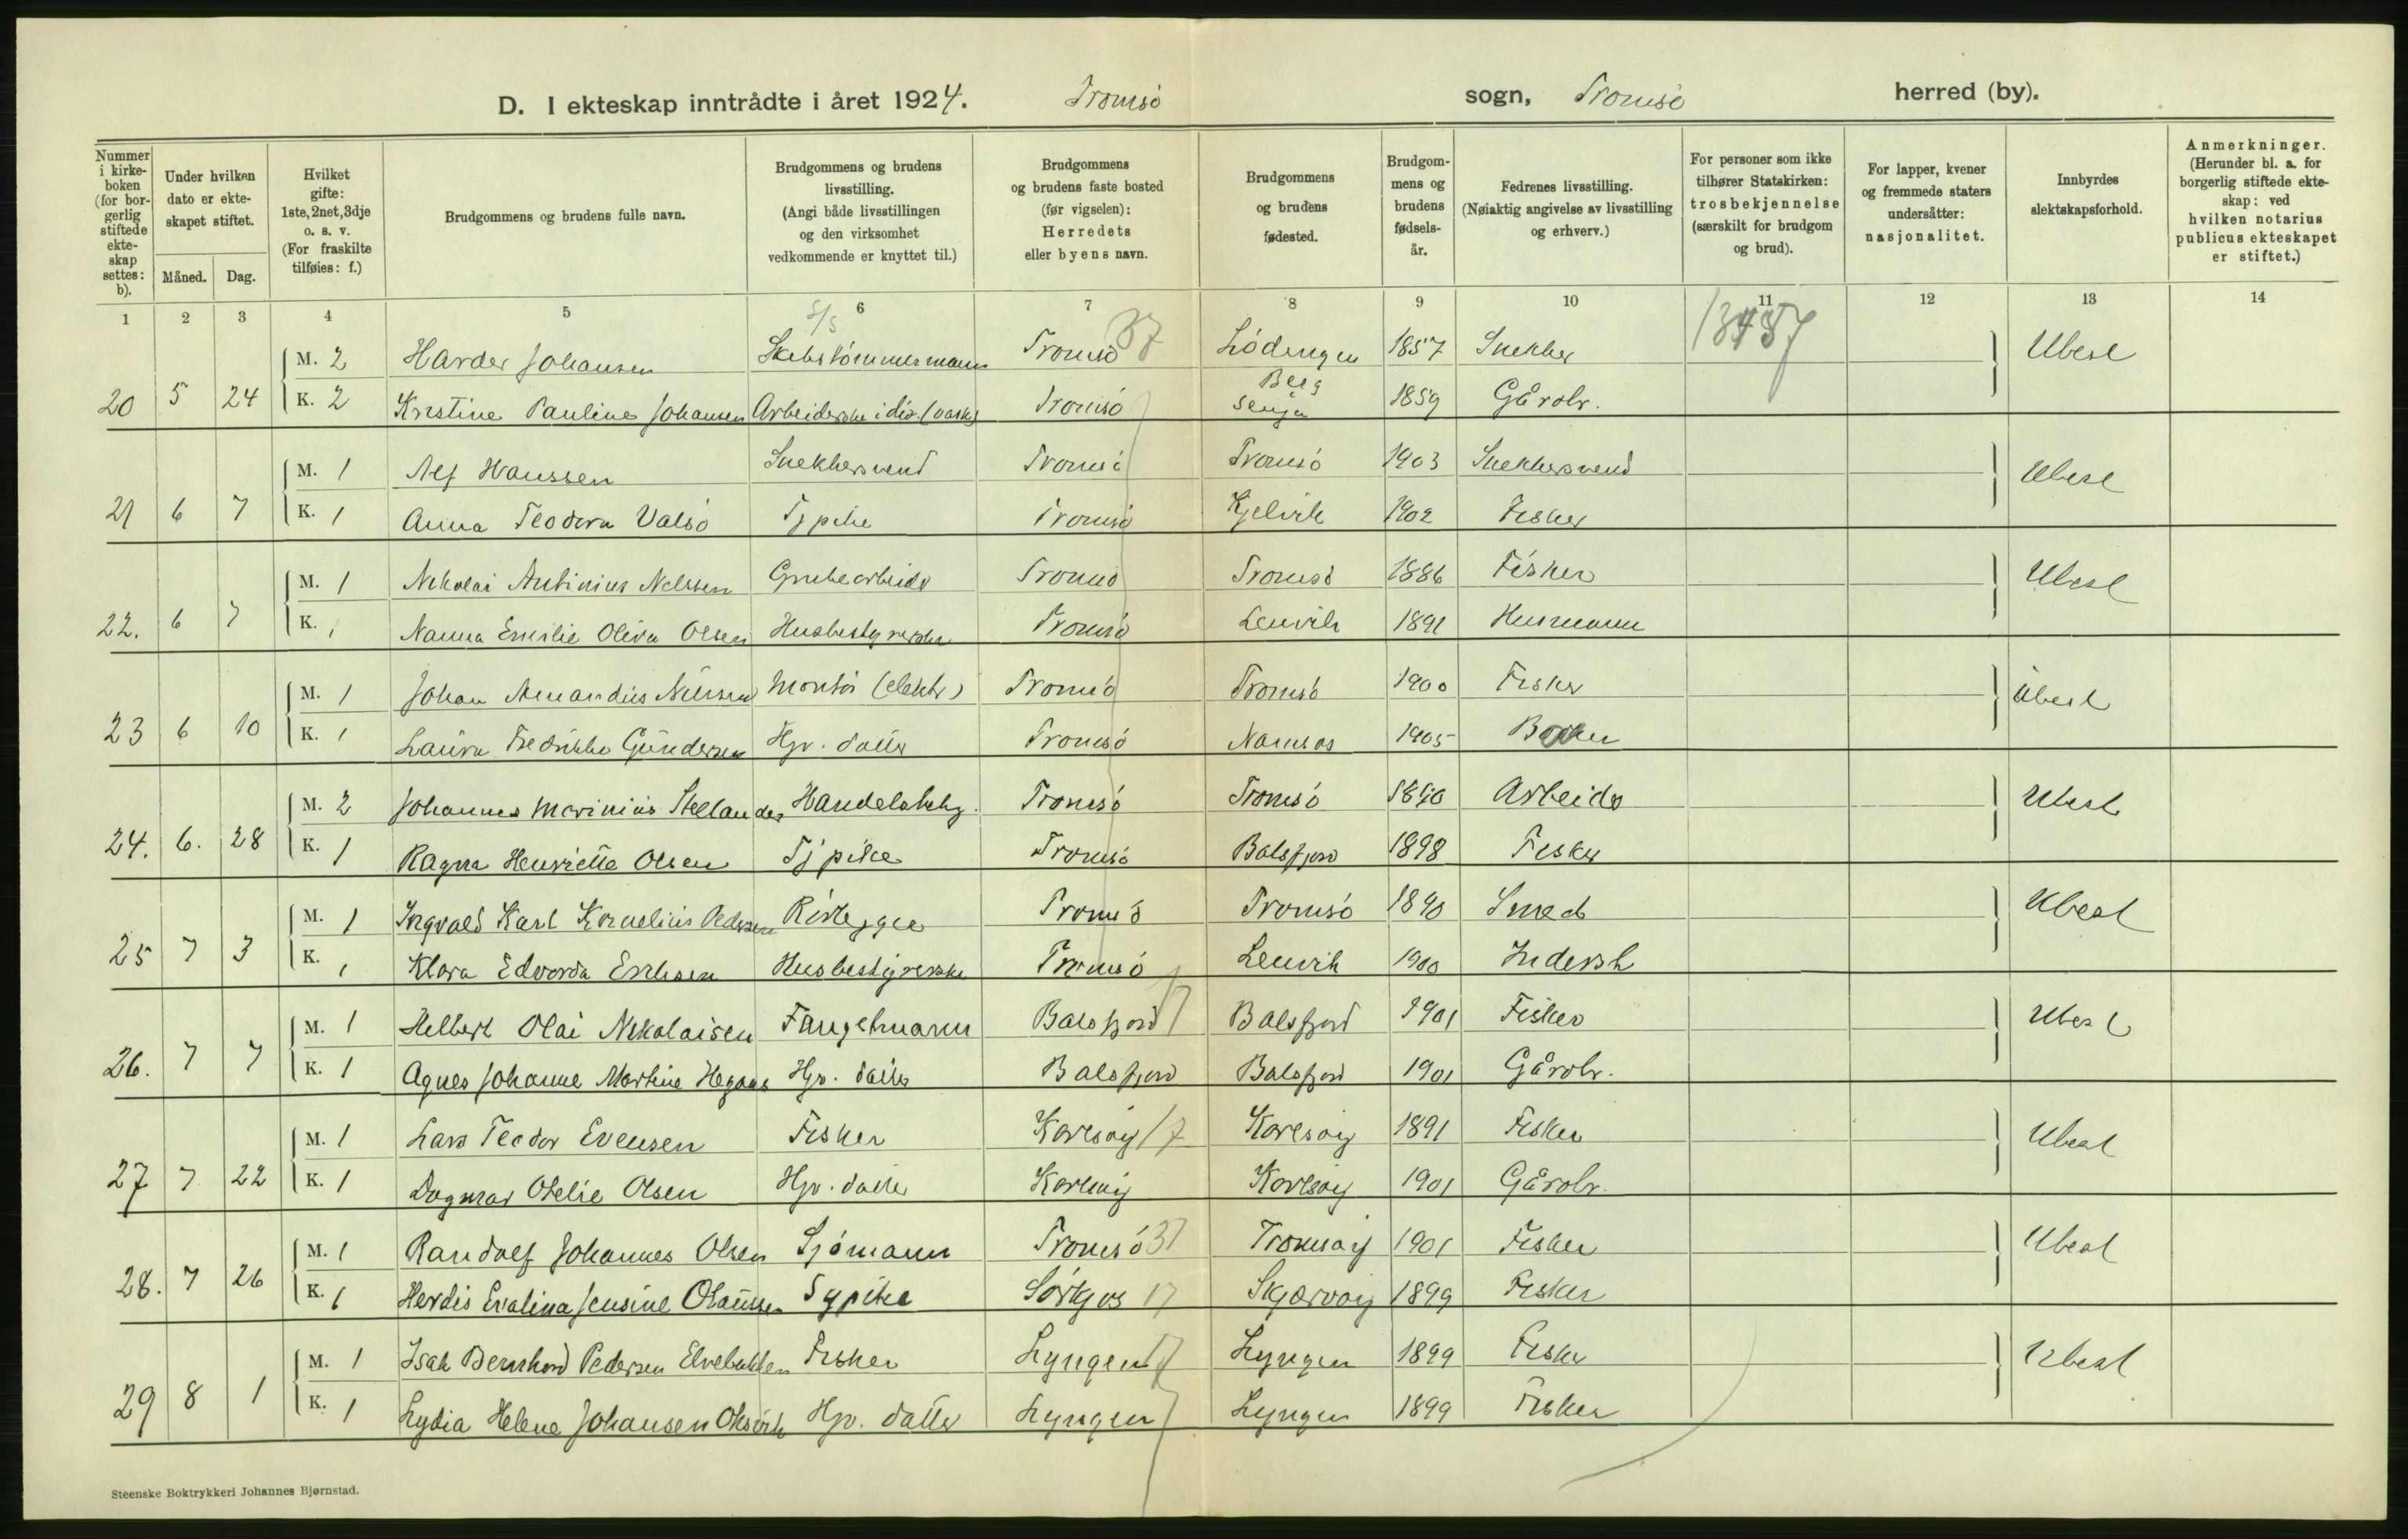 D. I ekteskap inntrådte i året 1924. Tromsö sogn, Tromsö herred (by).
Nummer i kirkeboken (for borgerlig stiftede ekteskap settes: b).
Under hvilken dato er ekteskapet stiftet.
Måned. Dag.
Hvilket gifte: 1ste, 2net, 3dje o. s. v. (For fraskilte tilføies: f.)
Brudgommens og brudens fulle navn.
Brudgommens og brudens livsstilling. (Angi både livsstillingen og den virksomhet vedkommende er knyttet til.)
Brudgommens og brudens faste bosted (før vigselen): Herredets eller byens navn.
Brudgommens og brudens fødested.
Brudgommens og brudens fødselsår.
Fedrenes livsstilling. (Nøiaktig angivelse av livsstilling og erhverv.)
For personer som ikke tilhører Statskirken: trosbekjennelse (særskilt for brudgom og brud).
For lapper, kvener og fremmede staters undersåtter: nasjonalitet.
Innbyrdes slektskapsforhold.
Anmerkninger. (Herunder bl. a. for borgerlig stiftede ekteskap: ved hvilken notarius publicus ekteskapet er stiftet.)
1 2 3 4 5 6 7 8 9 10 11 12 13 14
M. 2 Harder Johansen Skibstömmermann Tromsö 37 Lödingen 1857 Snekker Ubesl
20 5 24 K. 2 Kristine Pauline Johansen Arbeiderske i div. (vask) Tromsö Berg Senja 1859 Gårdbr.
M. 1 Alf Hanssen Snekkersvend Tromsö Tromsö 1903 Snekkersvend Ubesl
21 6 7 K. 1 Anna Teodora Valsö Tj pike Tromsö Kjelvik 1902 Fisker
M. 1 Nikolai Antinius Nilssen Grubearbeider Tromsö Tromsö 1886 Fisker Ubesl
22. 6 7 K. 1 Nanna Emilie Oliva Olsen Husbestyrerske Tromsö Lenvik 1891 Husmann
M. 1 Johan Amandus Nilssen Montör (elektr) Tromsö Tromsö 1900 Fisker Ubesl
23 6 10 K. 1 Laura Fredrikke Gundersen Hjv. datter Tromsö Namsos 1905
M. 2 Johannes Marinius Stellander Handelsbetj. Tromsö Tromsö 1890 Arbeider Ubesl
24. 6. 28 K. 1 Ragna Henriette Olsen Tj pike Tromsö Balsfjord 1898 Fisker
M. 1 Ingvald Karl Kornelius Pedersen Tromsö Tromsö 1890 Smed Ubesl
25 7 3 K. 1 Klara Edvarda Eriksen Husbestyrerske Tromsö Lenvik 1900 Inderst
M. 1 Helbert Olai Nikolaisen Fangstmann Balsfjord 17 Balsfjord 1901 Fisker Ubesl
26. 7 7 K. 1 Agnes Johanne Martine Hegaas Hjv. datter Balsfjord Balsfjord 1901 Gårdbr.
M. 1 Lars Teodor Evensen Fisker Karlsöy 17 Karlsöy 1891 Fisker Ubesl
27 7 22 K. 1 Dagmar Otelie Olsen Hjv. datter Karlsöy Karlsöy 1901 Gårdbr.
M. 1 Randolf Johannes Olsen Sjömann Tromsö 37 Tromsöy 1901 Fisker Ubesl
28. 7 26 K. 1 Herdis Evalina Jensine Olaussen Sypike Sörkjos 17 Skjærvöy 1899 Fisker
M. 1 Isak Bernhard Pedersen Elvebakken Fisker Lyngen 17 Lyngen 1899 Fisker Ubesl
29 8 1 K. 1 Lydia Helene Johansen Hjv. datter Lyngen Lyngen 1899 Fisker
Steenske Boktrykkeri Johannes Bjørnstad.